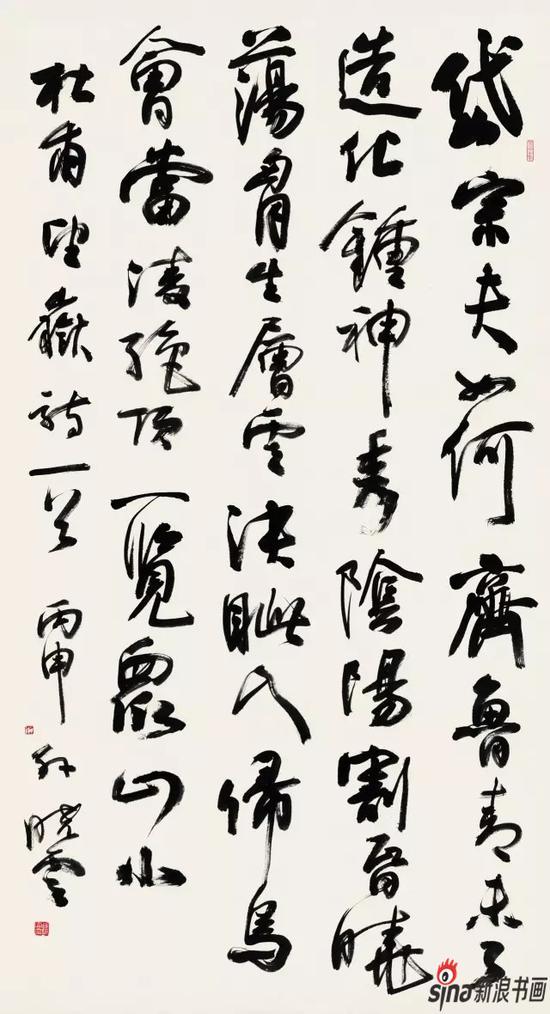 岱宗夫如何齊魯青未了
造化鍾神秀陰陽割昏曉
蕩胷生層雲決眦入歸鳥
會當凌絶頂一覽眾山小
杜甫望嶽詩一首 丙申 孫曉雲
sina新浪书画